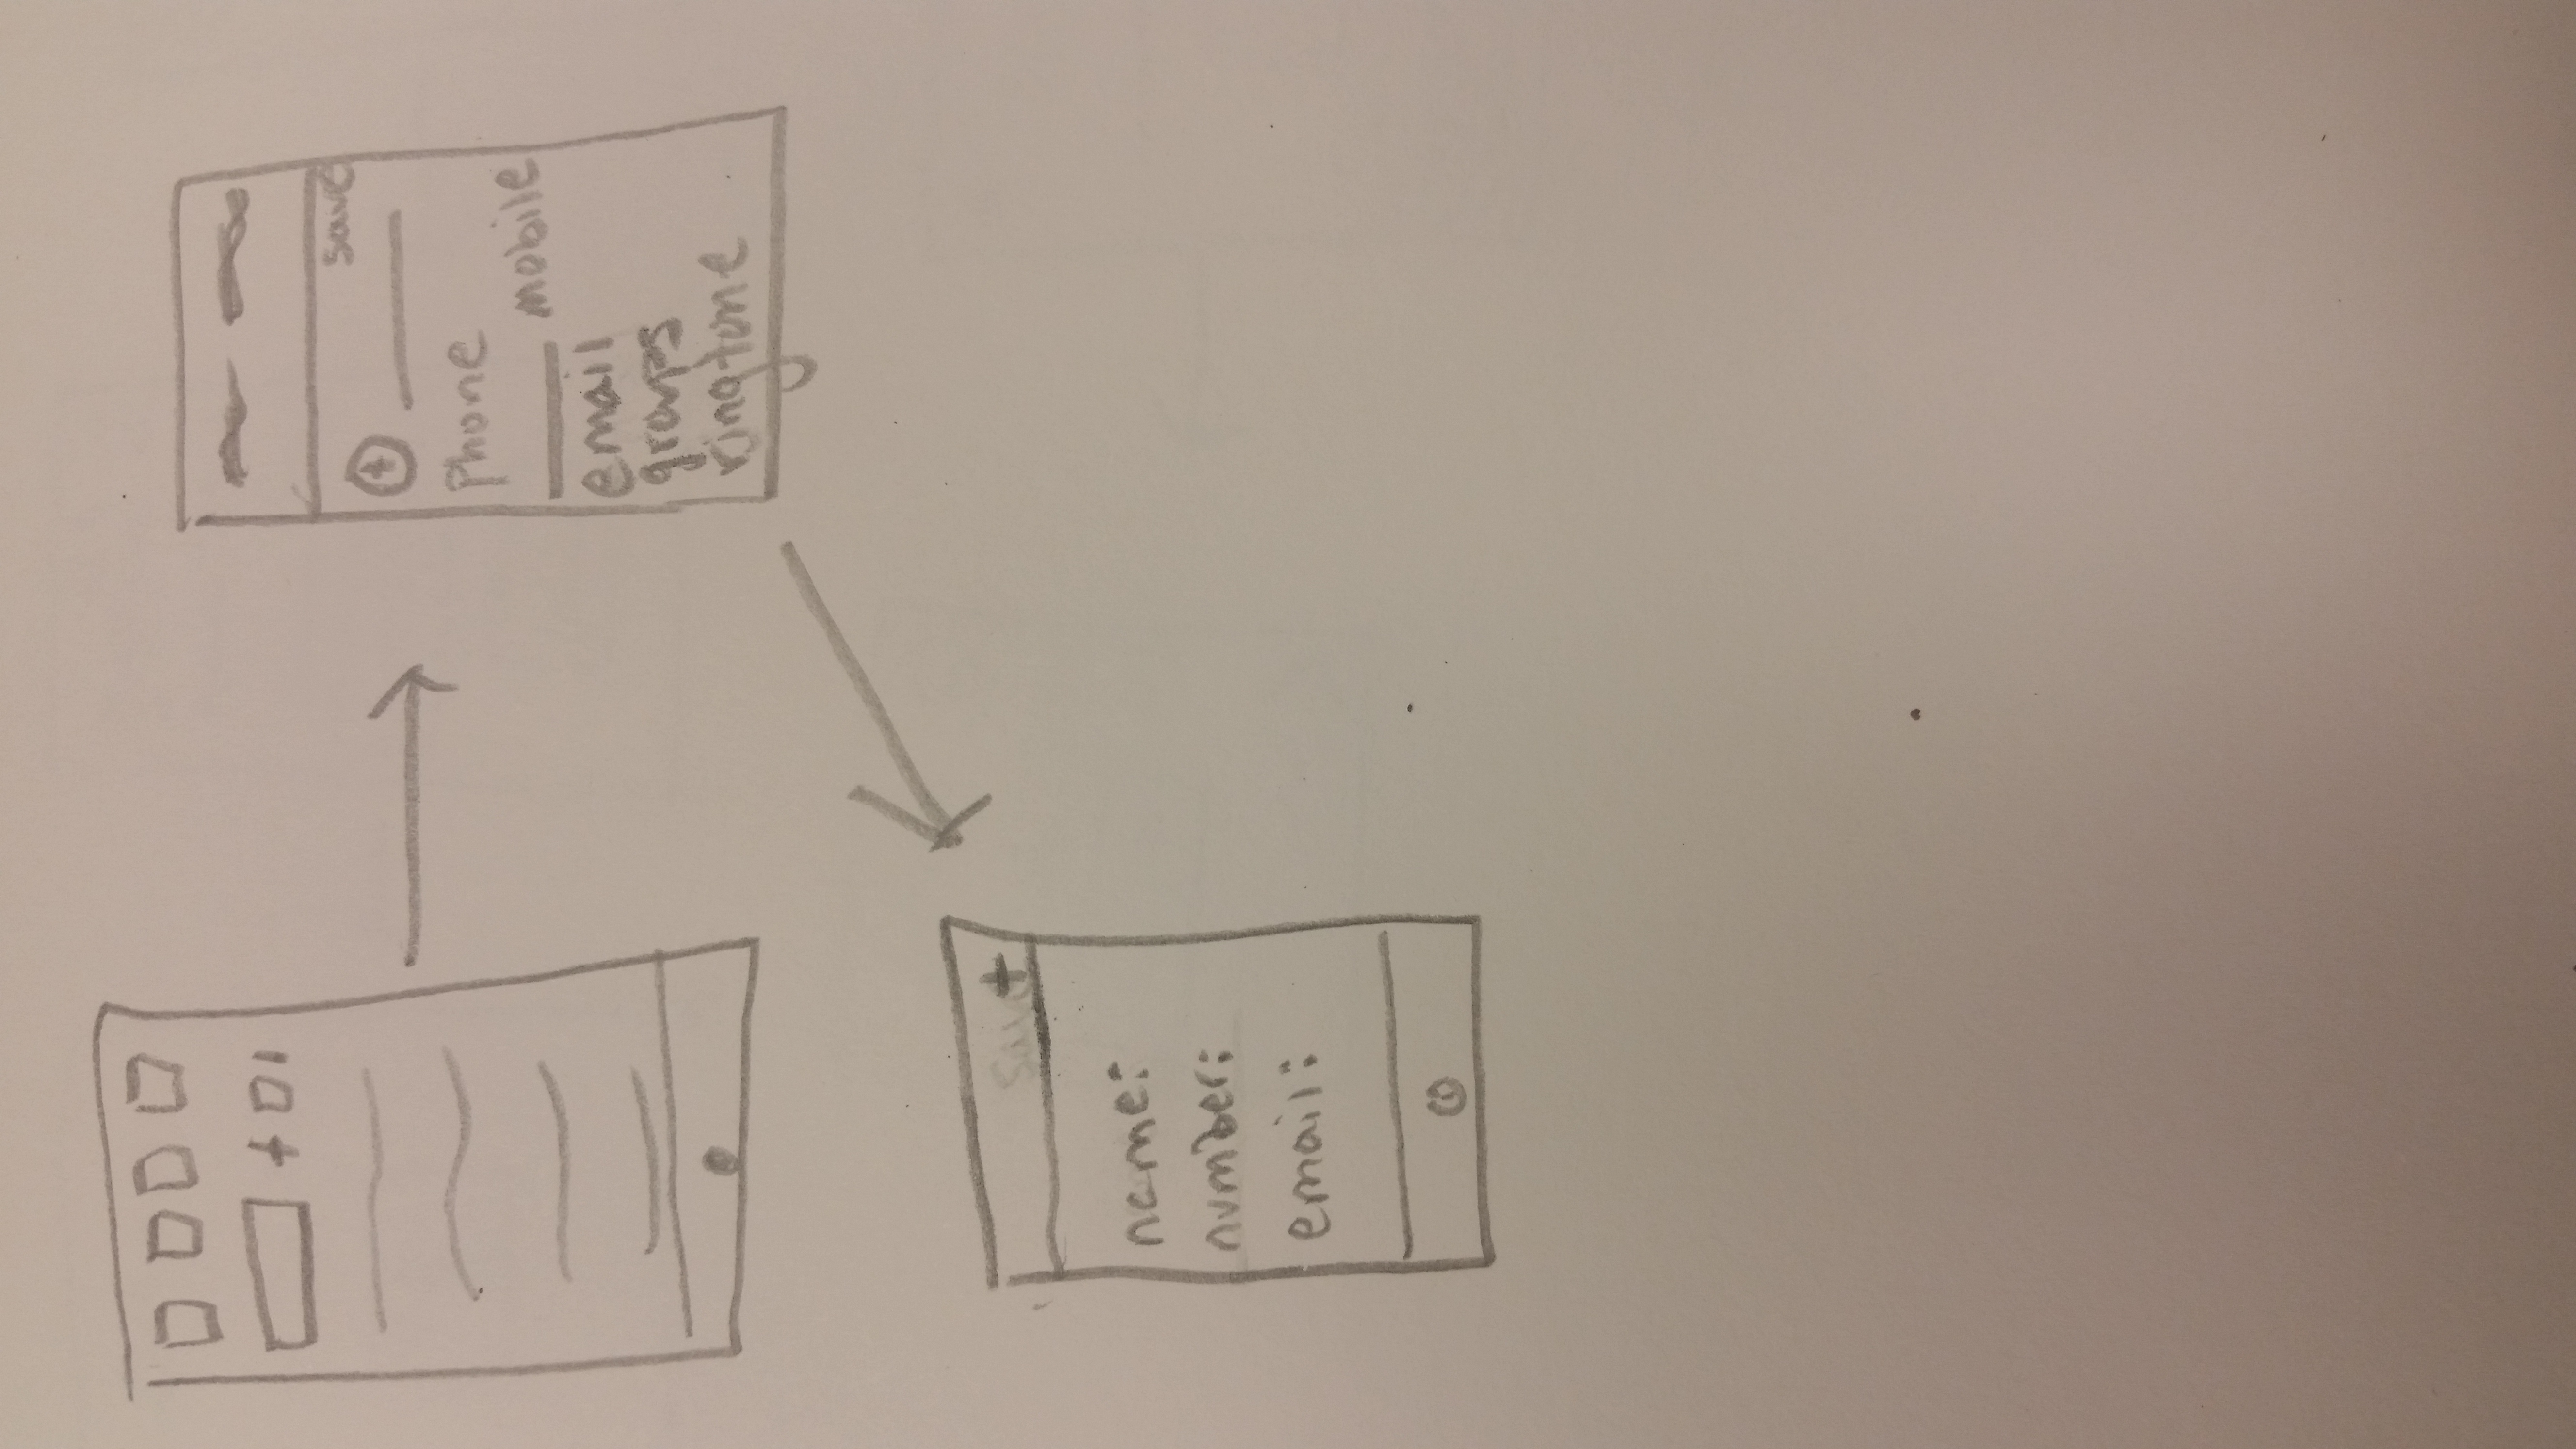 +
save
+
phone
mobile
email
groups
ringtone
save +
name:
number:
email: